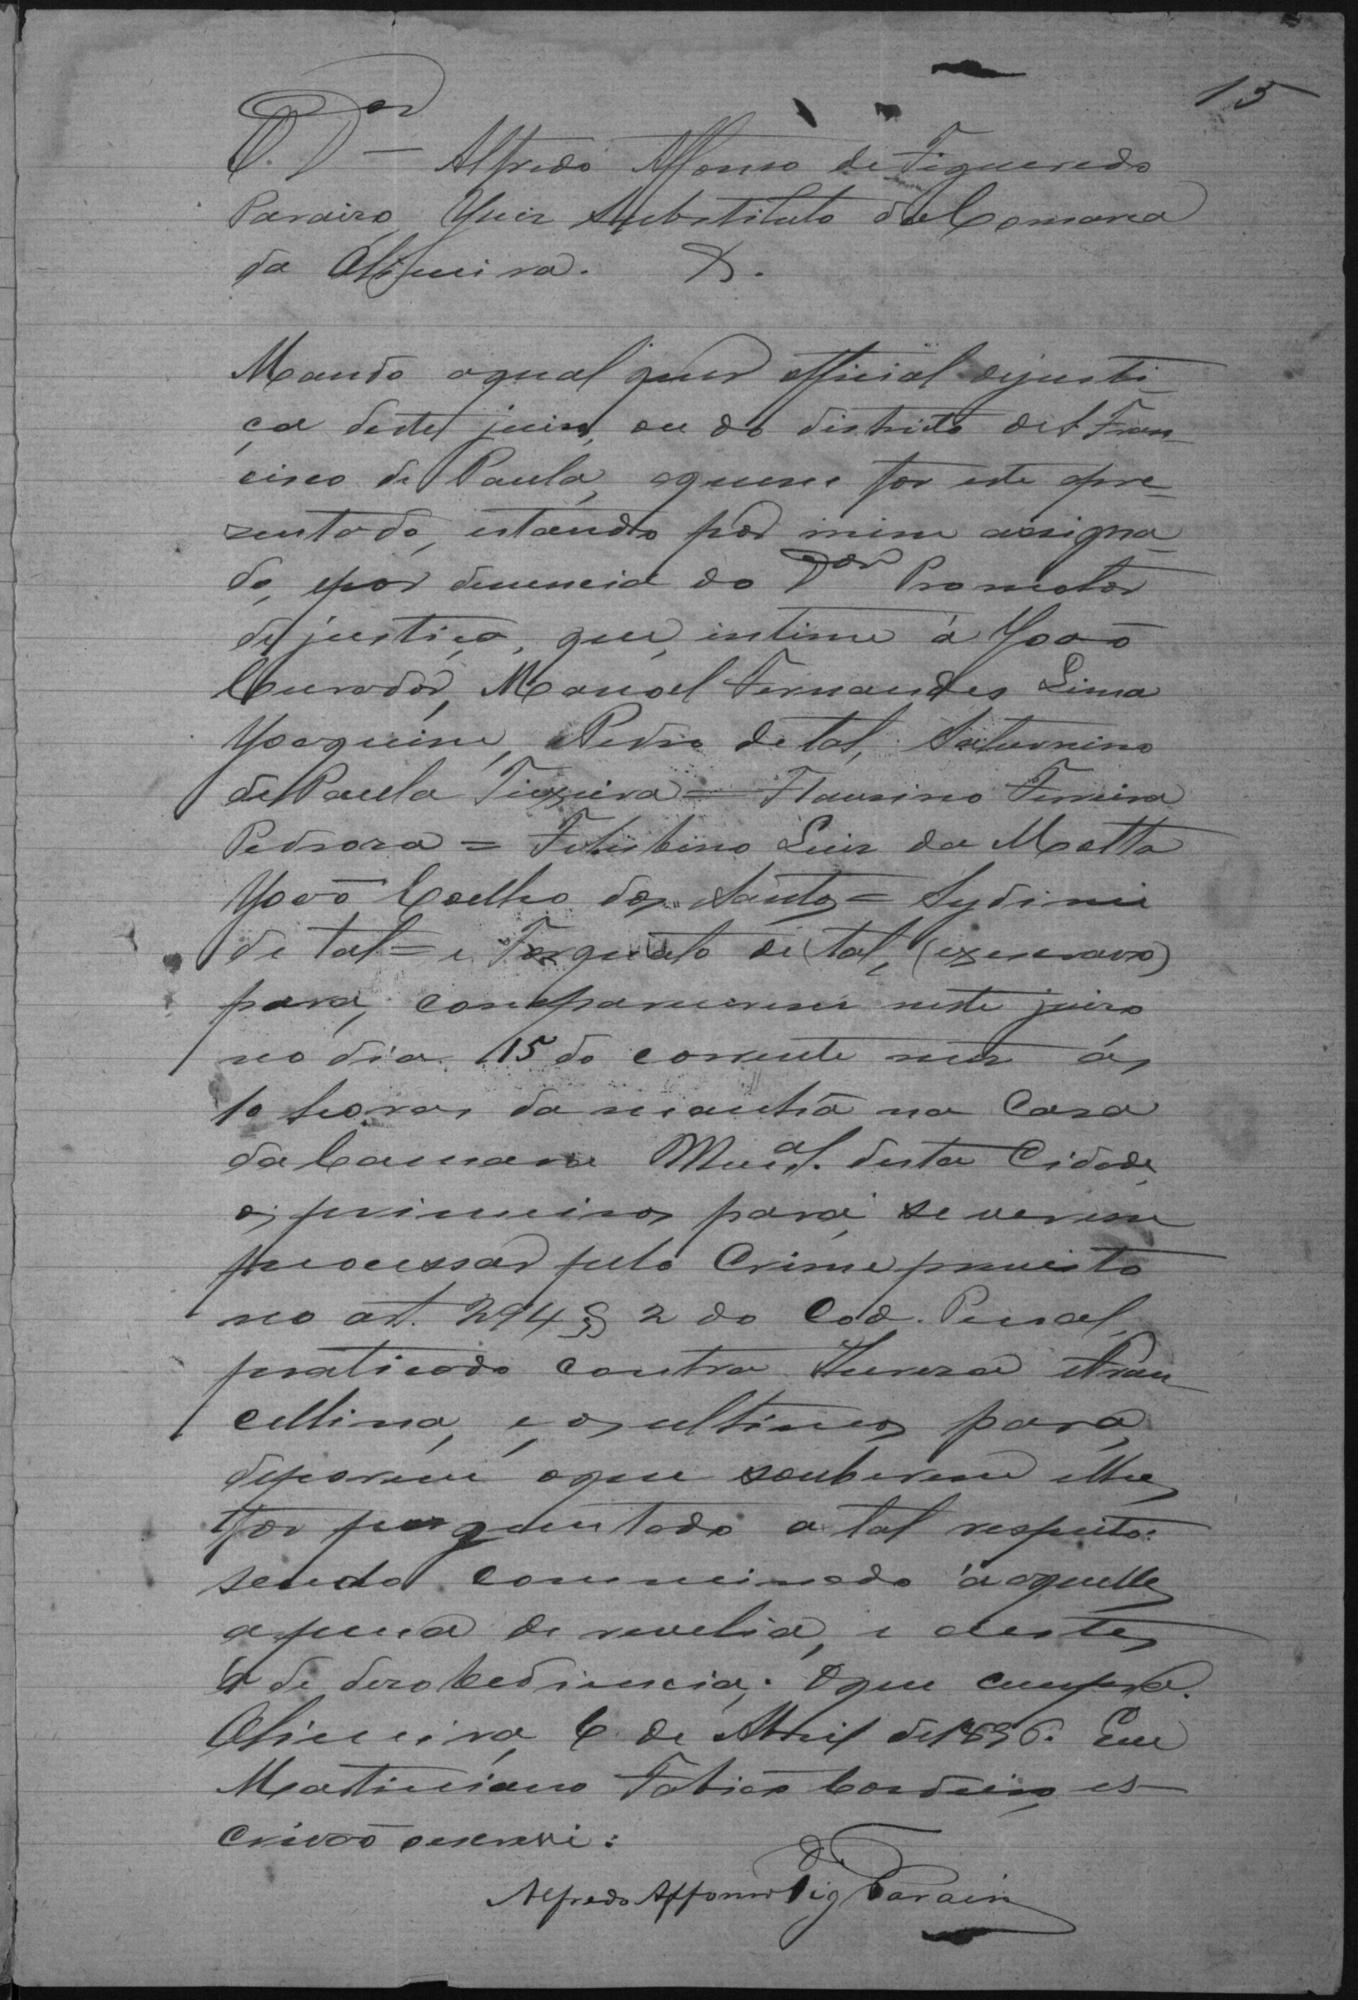 15
O Dor Alfredo Affonso de Figueredo
Paraizo Juiz Substituto da Comarca
da Oliveira. &.
Mando aqual quer official dejusti-
ça deste juizo, ou do districto de S Fran-
cisco de Paula, aquem for este apre-
zentado, estando por mim assigna-
do, epor denuncia do Dor Promotor
de justiça, que, intime á João
Curador, Manoel Fernandes Lima
Joaquim, Pedro de tal, Saturnino
de Paula Teixeira = Flausino Ferreira
Pedroza = Luiz da Motta
João Coelho dos Santos =
de tal = e Torquato de tal, (exescravo)
para, comparecerem neste juizo
no dia 15 do corrente mez ás
10 horas da manhã na Casa
da Camara Mual. desta Cidade
os primeiros para, se verem
processar pelo Crime previsto
no art. 294 § 2 do Cod. Penal,
praticado contra Thereza
cellina, e os ultimos para,
deporem oque souberem elhes
for perguntado a tal respeito:
sendo comminado áaquelles
apena de revelia, e aestes
a de dezobediencia; Oque cumpra.
Oliveira 6 de Abril de 1896. Eu
Martiniano Cordeiro es-
crivaõ oescrevi:
Alfredo Affonso de Fig Paraizo